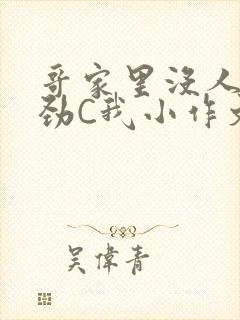 哥家里没人
劲C我小作文
吴偉青